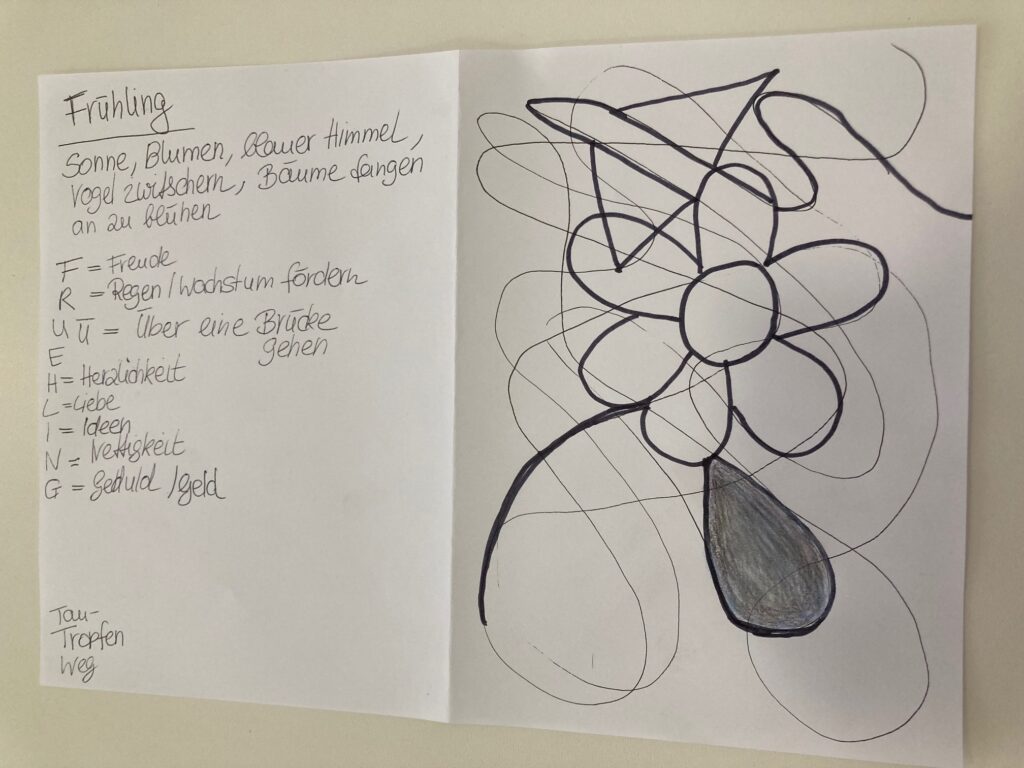 Frühling
Sonne, Blumen, blauer Himmel,
Vogel zwitschern, Bäume fangen
an zu blühen
F = Freude
R = Regen/Wachstum fördern
U Ü = Über eine Brücke
gehen
E
H = Herzlichkeit
L = Liebe
I = Ideen
N = Nettigkeit
G = Geduld/Geld
Tau-
Tropfen
Weg